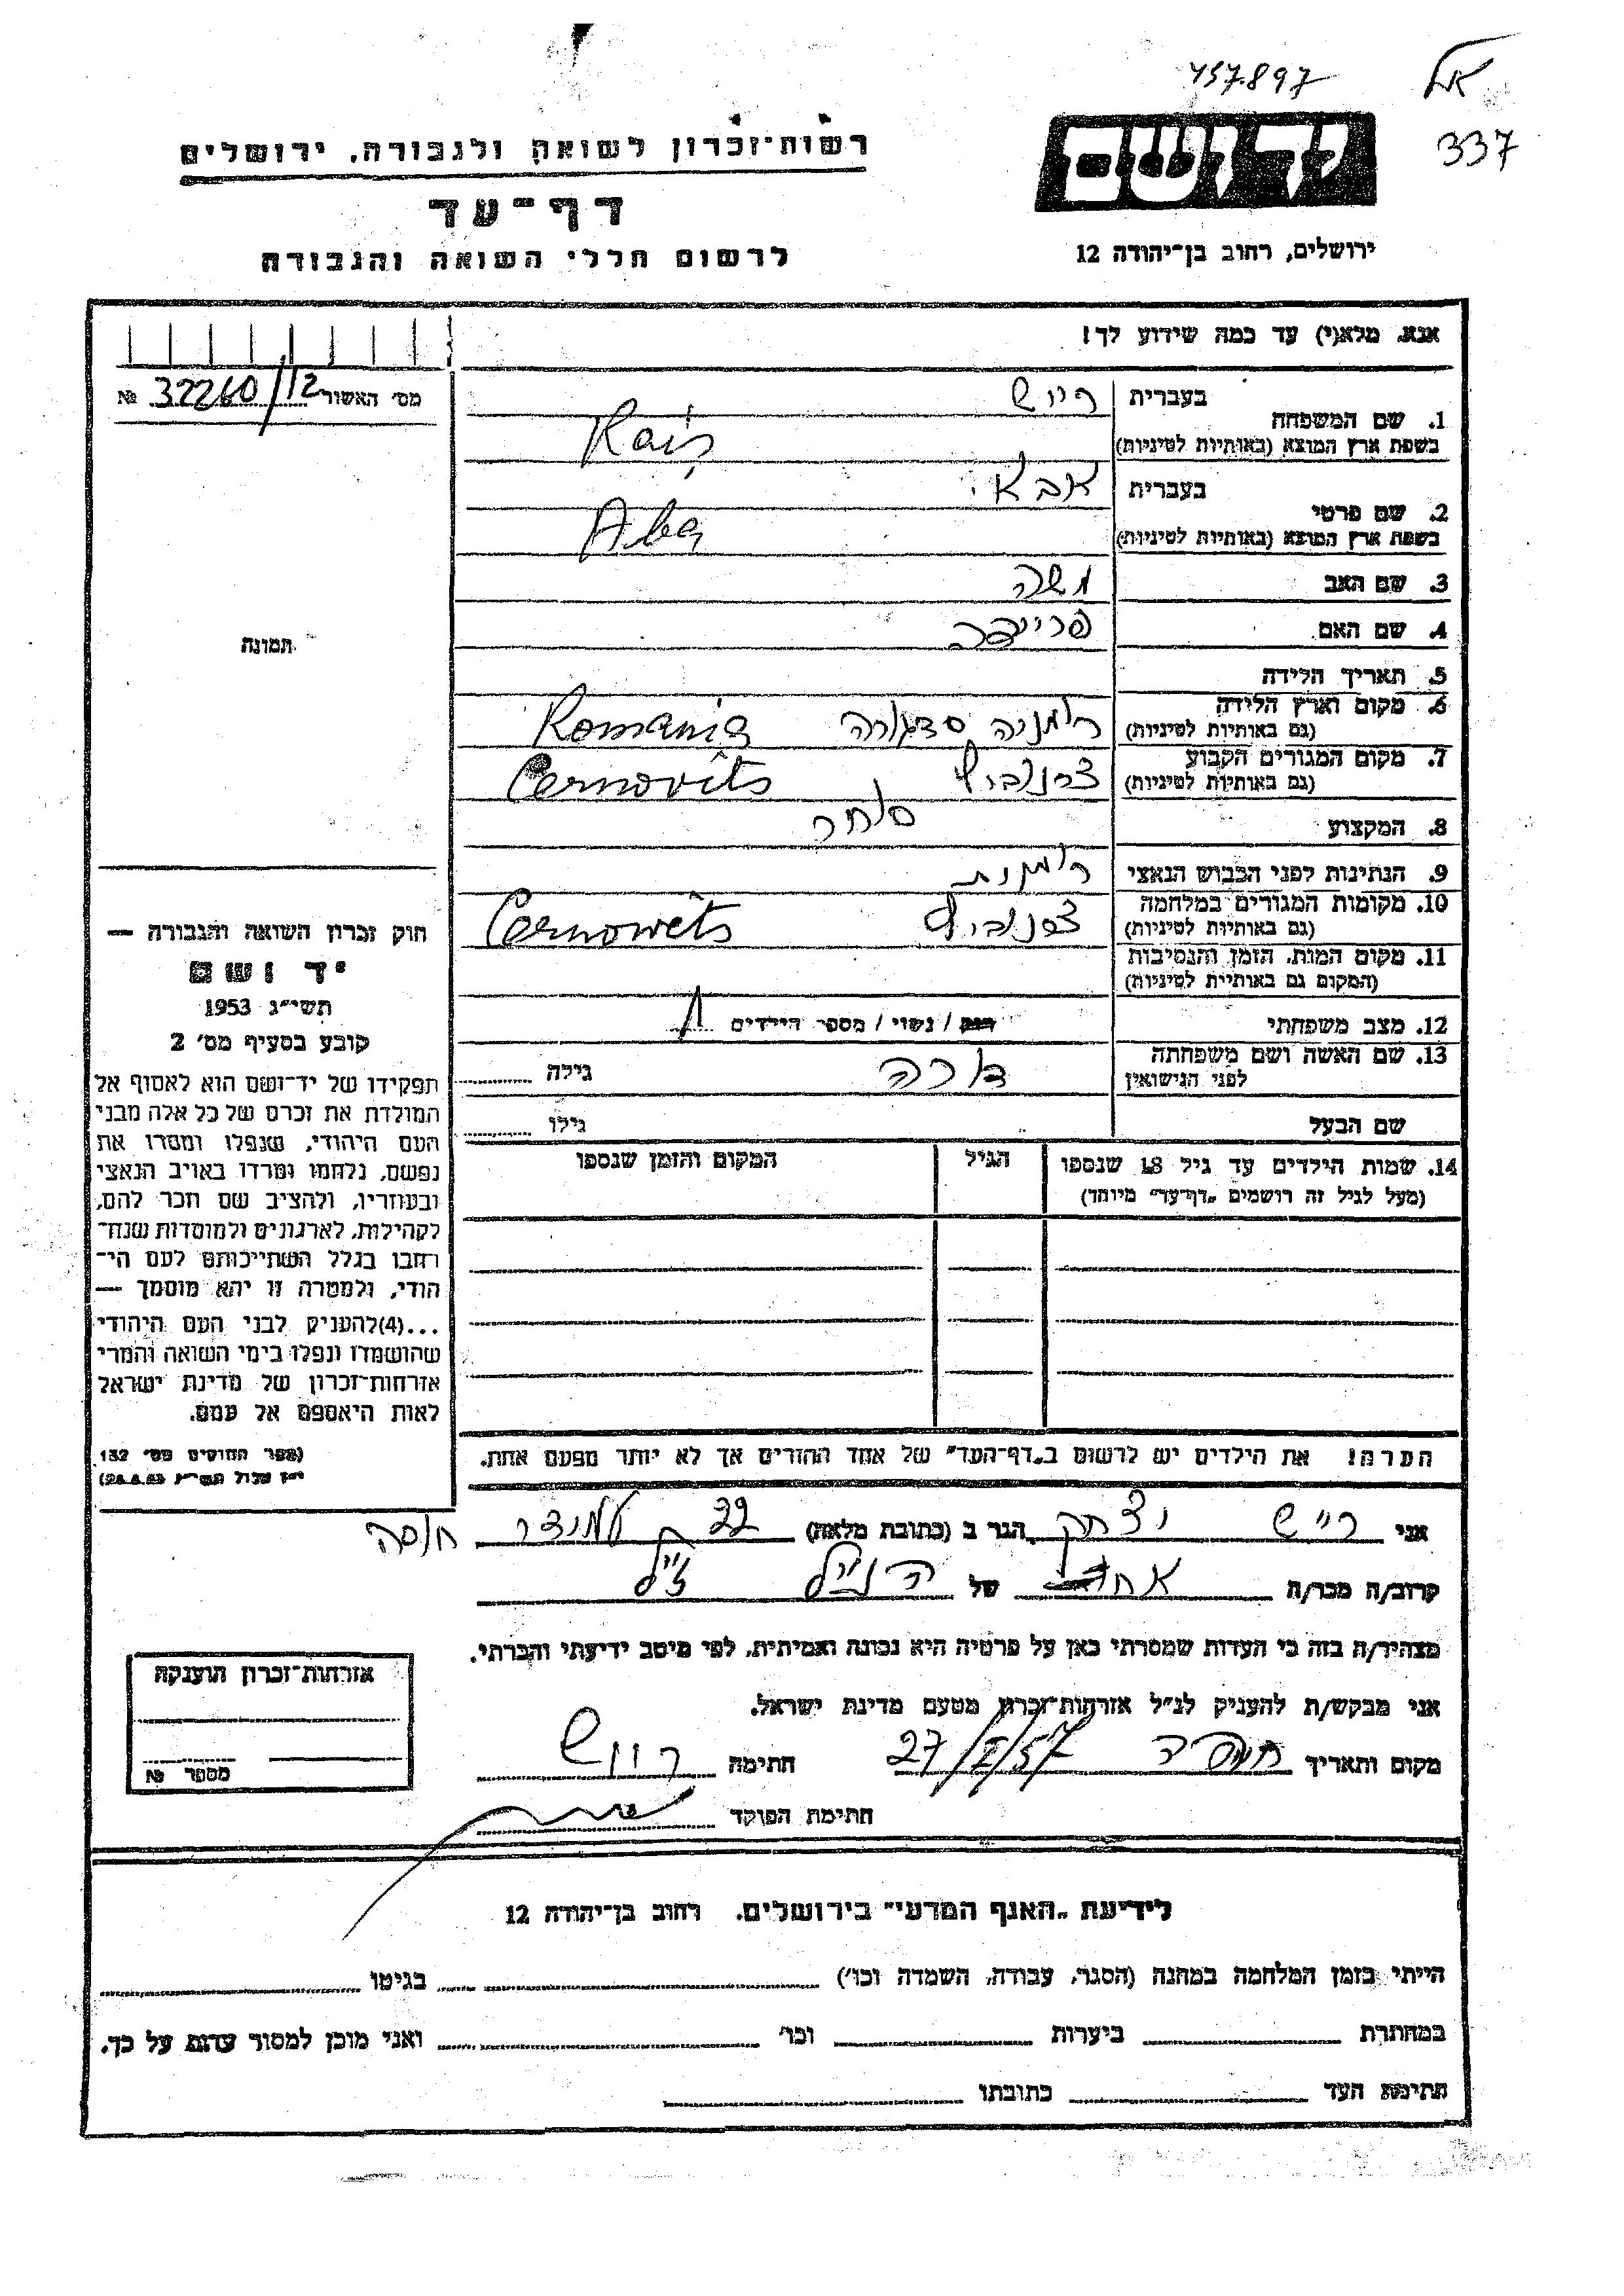 457.897
337
יד ושם
ירושלים, רחוב בן־יהודה 12
רשות־זכרון לשואה ולגבורה, ירושלים
דף־עד
לרשום חללי השואה והגבורה
אנא, מלא(י) עד כמה שידוע לך!
מס׳ האשור 32260/12 №
תמונה
1. שם המשפחה
בעברית רייש
בשפת ארץ המוצא (באותיות לטיניות) Raiș
2. שם פרטי
בעברית אבא
בשפת ארץ המוצא (באותיות לטיניות) Aba
3. שם האב משה
4. שם האם
5. תאריך הלידה
6. מקום וארץ הלידה רומניה סדגורה Romania
(גם באותיות לטיניות)
7. מקום המגורים הקבוע צרנוביץ Cernovits
(גם באותיות לטיניות)
8. המקצוע סוחר
9. הנתינות לפני הכבוש הנאצי רומנית
10. מקומות המגורים במלחמה צרנוביץ Cernowits
(גם באותיות לטיניות)
11. מקום המות, הזמן והנסיבות
(המקום גם באותיות לטיניות)
12. מצב משפחתי רווק / נשוי / מספר הילדים 1
13. שם האשה ושם משפחתה דורה גילה
לפני הנישואין
שם הבעל גילו
14. שמות הילדים עד גיל 18 שנספו הגיל המקום והזמן שנספו
(מעל לגיל זה רושמים „דף־עד" מיוחד)
הערה! את הילדים יש לרשום ב„דף־העד" של אחד ההורים אך לא יותר מפעם אחת.
חוק זכרון השואה והגבורה —
יד ושם
תשי״ג 1953
קובע בסעיף מס׳ 2
תפקידו של יד־ושם הוא לאסוף אל
המולדת את זכרם של כל אלה מבני
העם היהודי, שנפלו ומסרו את
נפשם, נלחמו ומרדו באויב הנאצי
ובעוזריו, ולהציב שם וזכר להם,
לקהילות, לארגונים ולמוסדות שנח־
רבו בגלל השתייכותם לעם הי־
הודי, ולמטרה זו יהא מוסמך —
...(4)להעניק לבני העם היהודי
שהושמדו ונפלו בימי השואה והמרי
אזרחות־זכרון של מדינת ישראל
לאות היאספם אל עמם.
(ספר החוקים מס׳ 132
י״ז אלול תשי״ג 28.8.53)
אני רייש יצחק הגר ב (כתובת מלאה) 22
קרוב/ה מכר/ה אחיו של הנ״ל ז״ל
מצהיר/ה בזה כי העדות שמסרתי כאן על פרטיה היא נכונה ואמיתית, לפי מיטב ידיעתי והכרתי.
אני מבקש/ת להעניק לנ״ל אזרחות־זכרון מטעם מדינת ישראל.
מקום ותאריך 27/I/57 חתימה רייש
חתימת הפוקד
אזרחות־זכרון הוענקה
מספר №
לידיעת „האגף המדעי" בירושלים, רחוב בן־יהודה 12
הייתי בזמן המלחמה במחנה (הסגר, עבודה, השמדה וכו׳) בגיטו
במחתרת ביערות וכו׳ ואני מוכן למסור עדות על כך.
חתימת העד כתובתו